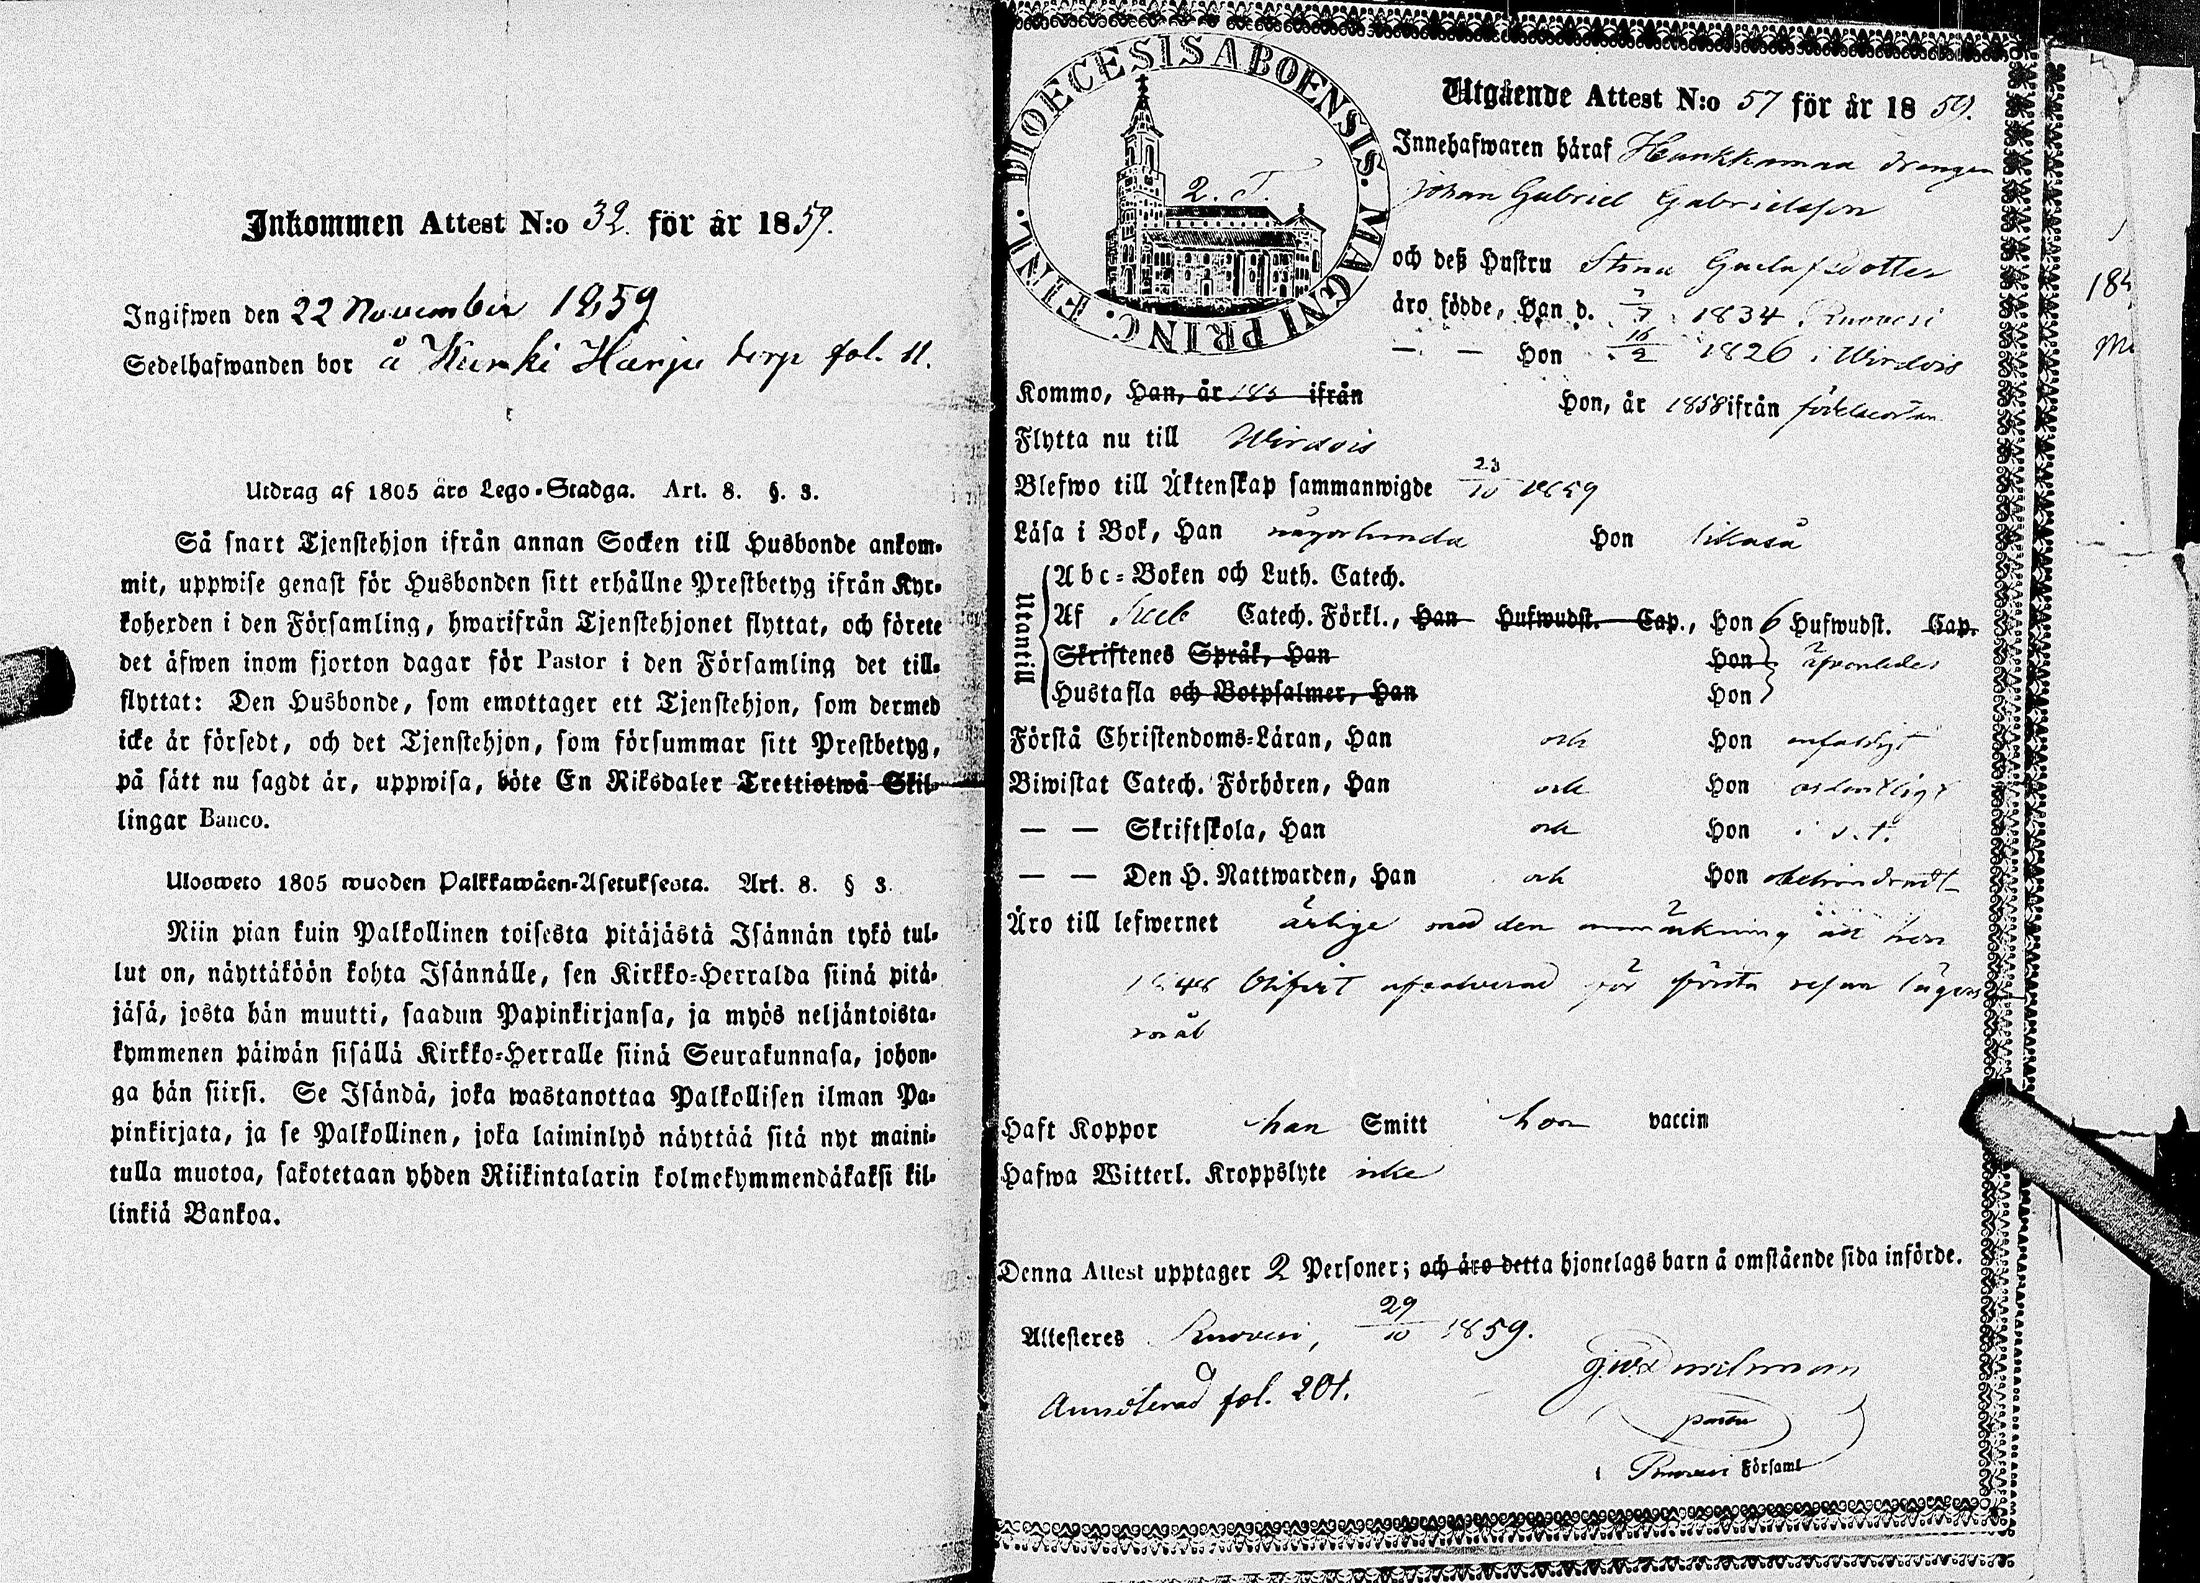 Inkommen Attest N:o 32. för år 1859.
Ingifwen den 22 November 1859
Sedelhafwanden bor å Kurki Harju torp fol. 11.
Utdrag af 1805 års Lego-Stadga. Art. 8. §. 3.
Så snart Tjenstehjon ifrån annan Socken till Husbonde ankom-
mit, uppwise genast för Husbonden sitt erhållne Prestbetyg ifrån Kyr-
koherden i den Församling, hwarifrån Tjenstehjonet flyttat, och förete
det äfwen inom fjorton dagar för Pastor i den Församling det till-
flyttat: Den Husbonde, som emottager ett Tjenstehjon, som dermed
icke är försedt, och det Tjenstehjon, som försummar sitt Prestbetyg,
på sätt nu sagdt är, uppwisa, böte En Riksdaler Trettiotwå Skil-
lingar Banco.
Ulosweto 1805 wuoden Palkkawäen-Asetuksesta. Art. 8. § 3.
Niin pian kuin Palkollinen toisesta pitäjästä Isännän tykö tul-
lut on, näyttäköön kohta Isännälle, sen Kirkko-Herralda siinä pitä-
jäsä, josta hän muutti, saadun Papinkirjansa, ja myös neljäntoista-
kymmenen päiwän sisällä Kirkko-Herralle siinä Seurakunnasa, johon-
ga hän siirsi. Se Isändä, joka wastanottaa Palkollisen ilman Pa-
pinkirjata, ja se Palkollinen, joka laiminlyö näyttää sitä nyt maini-
tulla muotoa, sakotetaan yhden Riikintalarin kolmekymmendäkaksi kil-
linkiä Bankoa.
DIOECESIS ABOENSIS. MAGNI PRINC. FINL.
2. T.
Utgående Attest N:o 57 för år 1859.
Innehafwaren häraf Hankkamaa drängen
Johan Gabriel Gabrielsson
och deß Hustru Stina Gustafsdotter
äro födde, Han d. 1834 Ruovesi
— — Hon 16/2 1826 i Wirdois
Kommo, Han, år 185 ifrån Hon, år 1858 ifrån födelseorten
Flytta nu till Wirdois
Blefwo till Äktenskap sammanwigde 23/10 1859
Läsa i Bok, Han någorlunda Hon likaså
Utantill
Abc-Boken och Luth. Catech.
Af Catech. Förkl., Han Hufwudst. Cap., Hon 6 Hufwudst. Cap.
Skriftenes Språk, Han Hon äfvenledes
Hustafla och Botpsalmer, Han Hon
Förstå Christendoms-Läran, Han och Hon enfaldigt
Biwistat Catech. Förhören, Han och Hon ordentligt
— — Skriftskola, Han och Hon i s. t.
— — Den H. Nattwarden, Han och Hon obehindradt
Äro till lefwernet ärlige med den anmärkning att hon
1848 blifvit afsolverad för första resan lägers-
mål
Haft Koppor han Smitt hon vaccin
Hafwa Witterl. Kroppslyte icke
Denna Attest upptager 2 Personer; och äro detta hjonelags barn å omstående sida införde.
Attesteres Ruovesi, 29/10 1859.
Annoterad fol. 201.
pastor
i Ruovesi Församl